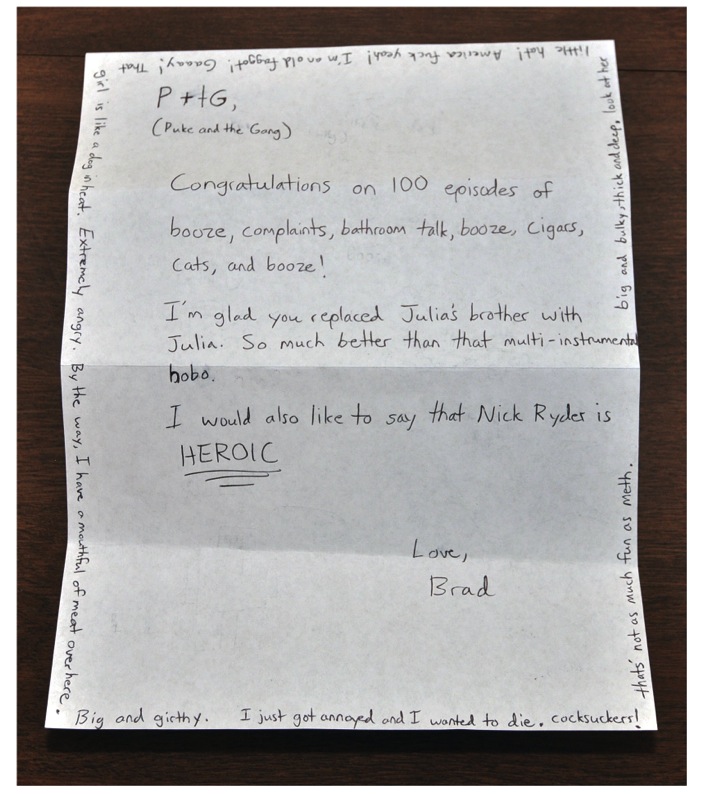 P + t G,
(Puke and the Gang)
Congratulations on 100 episodes of
booze, complaints, bathroom talk, booze, cigars,
cats, and booze!
I'm glad you replaced Julia's brother with
Julia. So much better than that multi-instrumental
hobo.
I would also like to say that Nick Ryder is
HEROIC
Love,
Brad
Big and girthy. I just got annoyed and I wanted to die. cocksuckers!
thats' not as much fun as meth.
big and bulky, thick and deep, look at her
little hot! America fuck yeah! I'm an old faggot! Gaaay! That
girl is like a dog in heat. Extremely angry. By the way, I have a mouthful of meat over here.